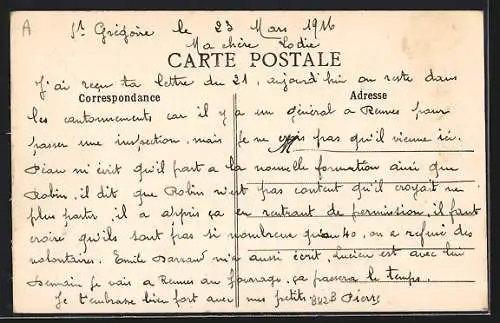 A
St Grégoire le 23 Mars 1916
Ma chère Lodie
CARTE POSTALE
J'ai reçu ta lettre du 21, aujourd'hui on reste dans
Correspondance
Adresse
les cantonnements car il y a un général a Rennes pour
passer une inspection, mais je ne crois pas qu'il vienne ici.
m'écrit qu'il part a la nouvelle formation ainsi que
Robin, il dit que Robin n'est pas content qu'il croyait ne
plus partir, il a appris ça en rentrant de permission, il faut
croire qu'ils sont pas si nombreux qu'an 40, on a refusé des
volontaires. Emile m'a aussi écrit, Lucien est avec lui
Demain je vais a Rennes au fourrage, ça passera le temps.
Je t'embrasse bien fort avec mes petits Pierre